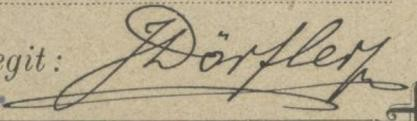 egit: JDörfler